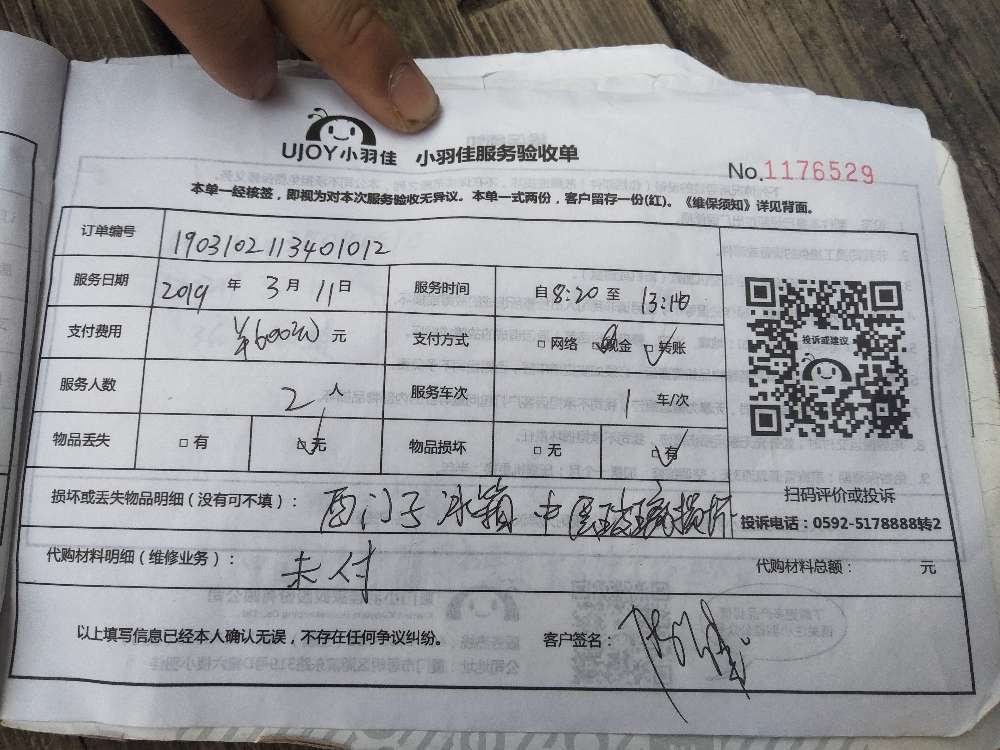 UJOY小羽佳 小羽佳服务验收单
No.1176529
本单一经核签，即视为对本次服务验收无异议。本单一式两份，客户留存一份(红)。《维保须知》详见背面。
订单编号 1903102113401012
服务日期 2019 年 3 月 11 日 服务时间 自 8:20 至 13:10
支付费用 ¥600 元 支付方式 □网络 □现金 □转账
投诉或建议
服务人数 2 人 服务车次 1 车/次
物品丢失 □有 □无 物品损坏 □无 □有
损坏或丢失物品明细（没有可不填）： 西门子冰箱中 玻璃损坏
扫码评价或投诉
投诉电话：0592-5178888转2
代购材料明细（维修业务）： 未付 代购材料总额： 元
以上填写信息已经本人确认无误，不存在任何争议纠纷。 客户签名：